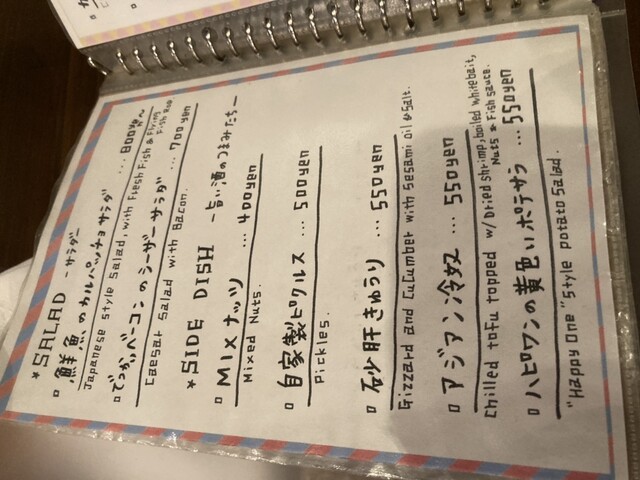 *SALAD -サラダ-
鮮魚のカルパッチョサラダ ... 800yen~
Japanese style Salad, with Fresh Fish & Flying Fish Roe
でっかいベーコンのシーザーサラダ ... 700yen
Caesar Salad with Bacon.
*SIDE DISH -旨い酒のつまみたち-
MIXナッツ ... 400yen
Mixed Nuts.
自家製ピクルス ... 500yen
Pickles.
砂肝きゅうり ... 550yen
Gizzard and Cucumber with Sesami oil & Salt.
アジアン冷奴 ... 550yen
Chilled tofu topped w/ Dried shrimp, boiled whitebait, Nuts & Fish sauce.
ハピワンの黄色いポテサラ ... 550yen
"Happy One" Style potato Salad.